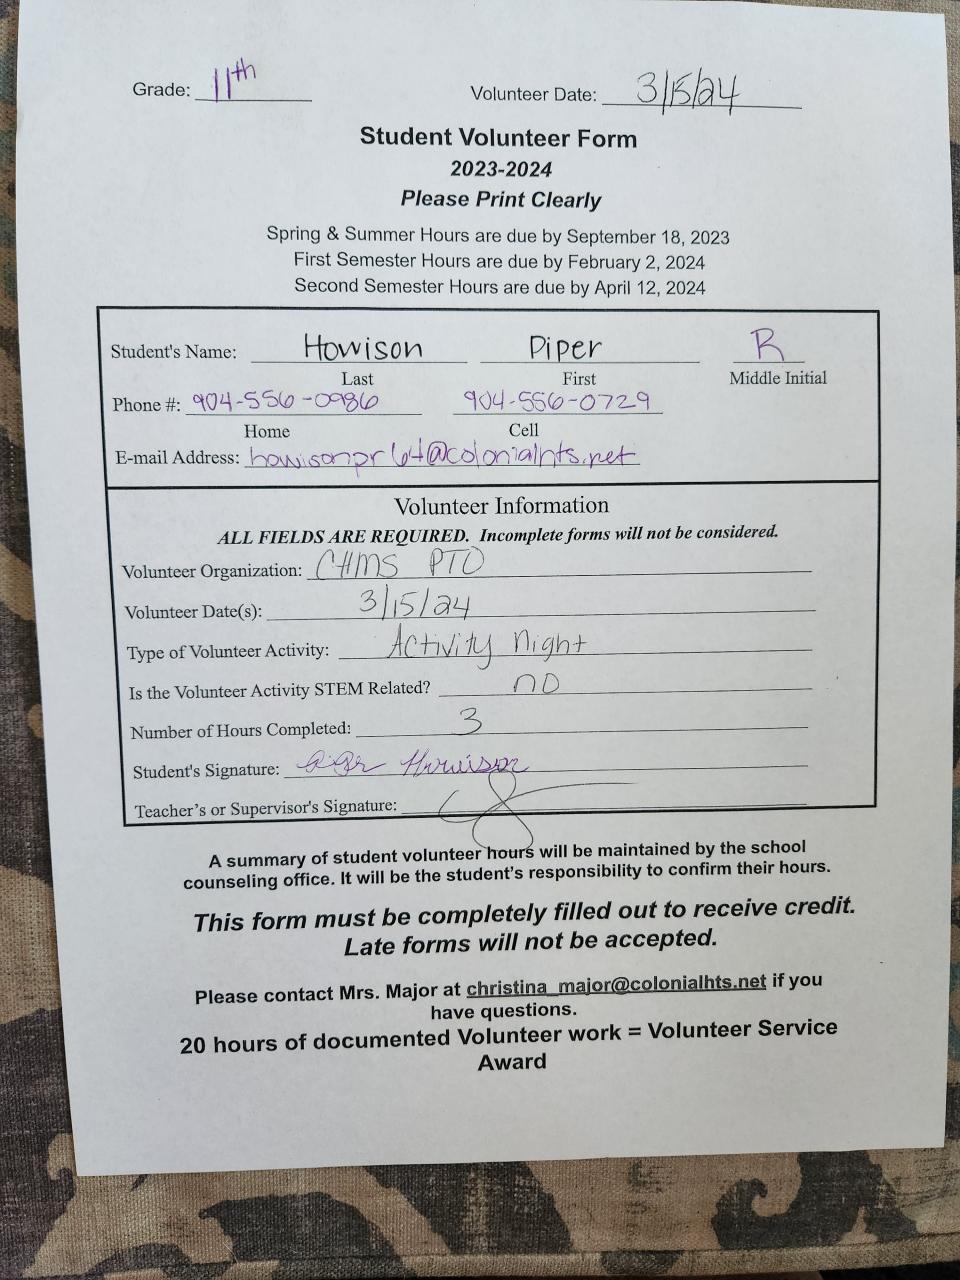 Grade: 11th Volunteer Date: 3/15/24
Student Volunteer Form
2023-2024
Please Print Clearly
Spring & Summer Hours are due by September 18, 2023
First Semester Hours are due by February 2, 2024
Second Semester Hours are due by April 12, 2024
Student's Name: Howison Piper R
Last First Middle Initial
Phone #: 904-556-0986 904-556-0729
Home Cell
E-mail Address: howisonpr64@colonialhts.net
Volunteer Information
ALL FIELDS ARE REQUIRED. Incomplete forms will not be considered.
Volunteer Organization: CHMS PTO
Volunteer Date(s): 3/15/24
Type of Volunteer Activity: Activity Night
Is the Volunteer Activity STEM Related? no
Number of Hours Completed: 3
Student's Signature: Piper Howison
Teacher's or Supervisor's Signature:
A summary of student volunteer hours will be maintained by the school
counseling office. It will be the student's responsibility to confirm their hours.
This form must be completely filled out to receive credit.
Late forms will not be accepted.
Please contact Mrs. Major at christina_major@colonialhts.net if you
have questions.
20 hours of documented Volunteer work = Volunteer Service
Award